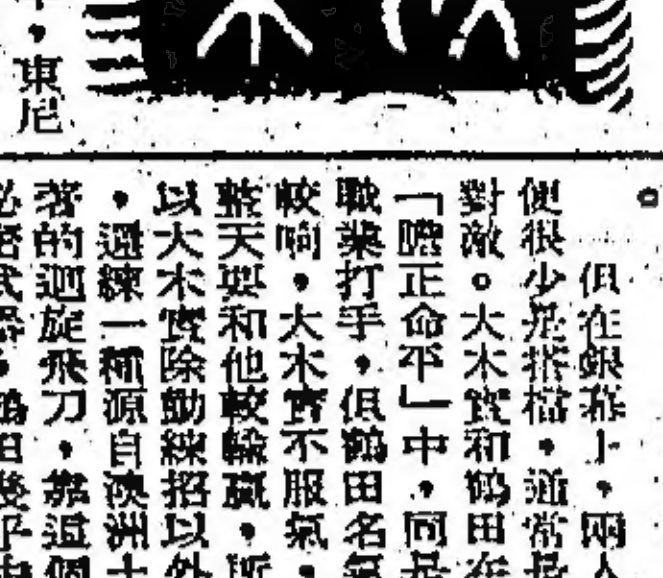 ,東尼
。
但在銀幕上,兩人
便很少是搭檔,通常是
對敵。大木實和鶴田在
「瞻正命平」中,同是
職業打手,但鶴田名氣
較响,大木實不服氣,
整天要和他較輸贏,所
以大木實除勤練招以外
,還練一種源自澳洲土
著的迴旋飛刀,靠這個
密武器,鶴田幾乎